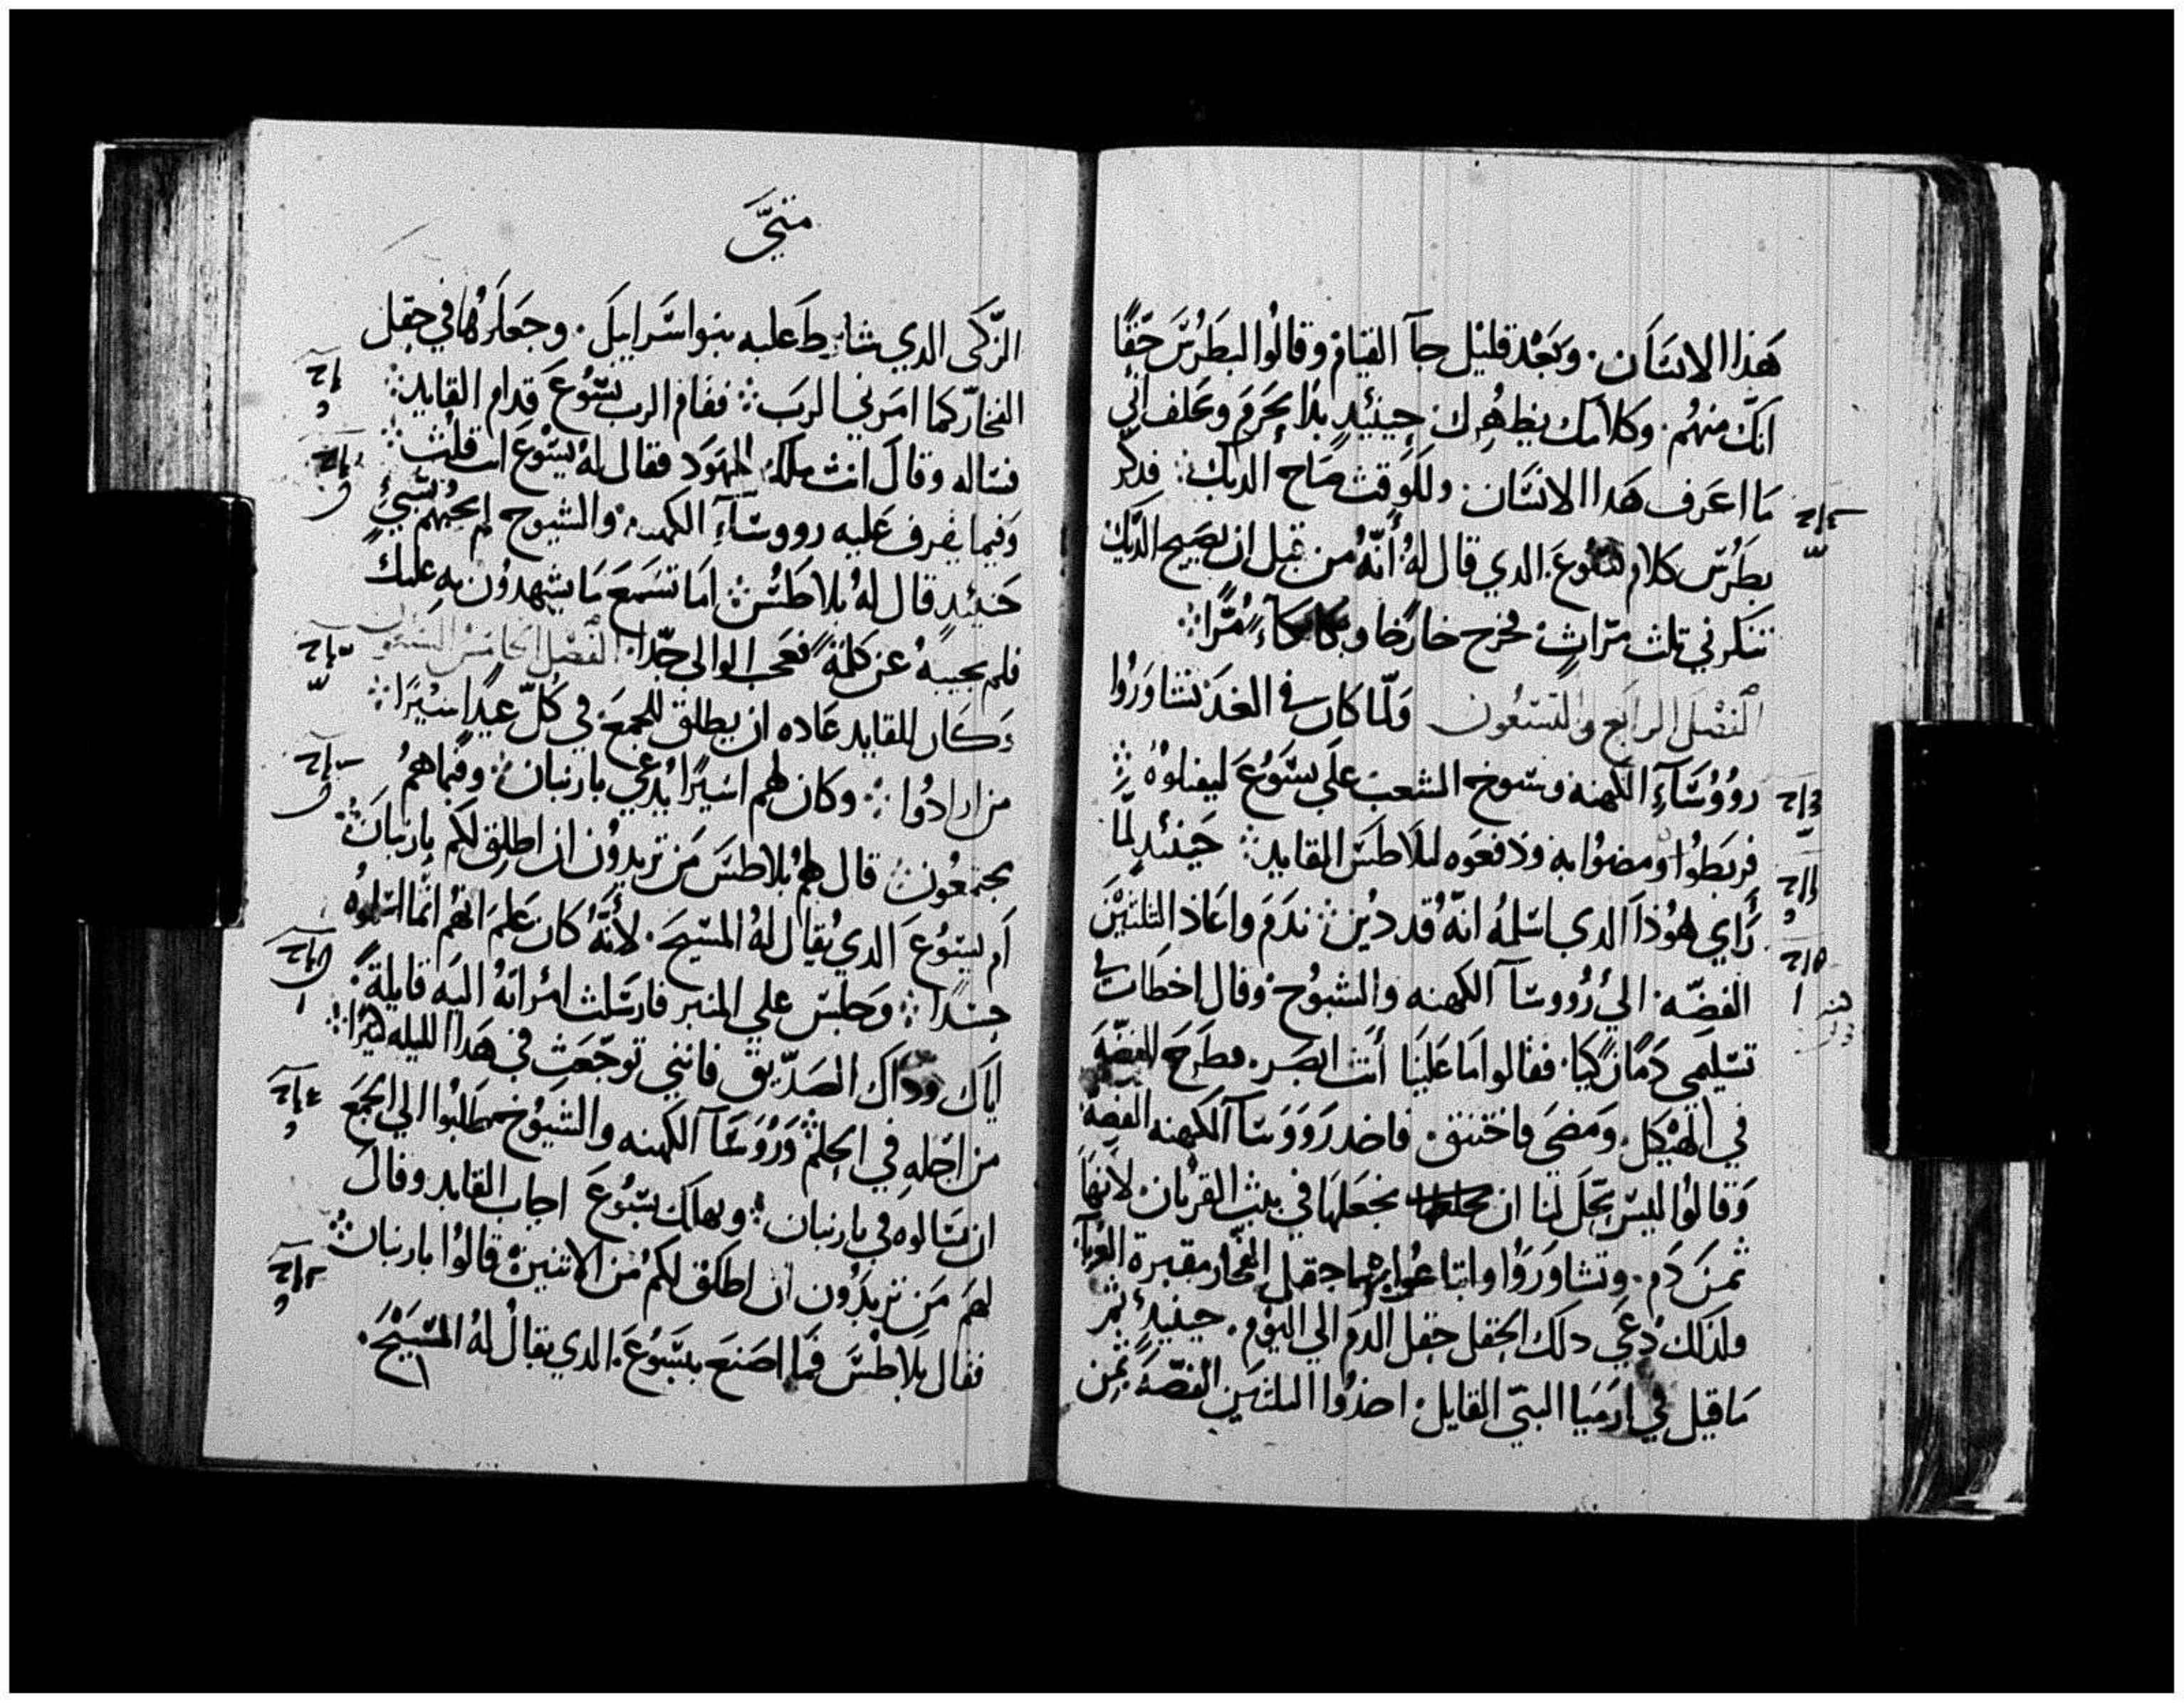 هَذا الانسَان. وبَعْد قليْل جآ القيام وقالُوا لبَطرُسَ حَقًا
انكَ منهُم. وكلامَك يظهِرك. حِينئِيدٍ بدَا يحَرم ويحلف اني
مَا اعرَف هَدا الانسَان. وللوَقت صَاح الديك. فدكر
بطَرُس كلام يسُوعَ. الدي قال لهُ أنّهُ من قبل ان يصَيح الدّيك
تنكرني تلت مرّاتٍ فخرج خارجًا وبكا بكاءً مُرًّا
الفصْل الرابَع والتسعُون وَلمّا كان في الغَد تشاورُوا
روُوُسَآءِ الكهنه وشيوخ الشعبَ علَي يسَوُعَ ليقتلوُهُ
فربَطوُا ومضوا به ودفعَوه لبلَاطسَ القايد حَينئيدٍ لمّا
رَأي هوُذا الدي اسَلمهُ انهٌ قد ديْن ندمَ واعَاد التلتيْنَ
الفضّه. الي رُووسَآ الكهنه والشيوُخ. وقال اخطَات في
تسَليمي دَمًا زكيَا. فقالوا مَا علَينَا أنت ابصَر. فطرَح الفضّهَ
في الهيْكل. وَمضيَ فاختنق. فاخد رَووَسَآ الكهنه الفضهَ
وَقالوُا ليسَ يحَّل لنا ان نجعَلهَا في بيْت القرُبان. لأنهَا
ثمنَ دَم. وتشاورَوُا وابتاعُوا بهَا حقل الفخّار مقبرة الغربآ.
ولذلك دُعَي دلك الحقل حقل الدم الي اليوْم. حينيدٍ ثم
مَا قيل في ارمَيَا النبيّ القايل. اخدوُا التلتيَن الفضّهَ ثمن
متيَّ
الزّكَى الدي شارطَ علَيه بنوا اسَراييل. وجعَلوهُا في حقل
الفخاَر كما امرَني الربَ فقام الرب يسُوعَ قدام القايد
فسَاله وقالَ انت ملك اليهَود فقال لهُ يسُوعَ انت قلت
وَفيما يقرف علَيه رووسَآءِ الكهنه. والشيوخ لم يجُبهم بشَيءٍ
حَينئيدٍ قال لهُ بلاطسُ امَا تسَمعَ مَا يشهدوُن بهِ عليك
فلم يجيبهُ عن كلمةً فعَجب الوالي جّدا. الفصْل الخامسَ والتسعون
وَكَان للقايد عَاده ان يطلق للجمعَ في كُلّ عيدٍ اسَيْرًا
من ارادوُا وكان لهم اسَيْرًا يُدعي بارنبان وفيما همُ
يجتمعوُن قال لهمُ بلاطسَ مَن تريدوُن ان اطلق لكم بارنبان
أم يسَوُعَ الدي يُقال لهُ المسَيحَ. لأنّهُ كان علَم انهُم انمّا اسَلموُه
حسَدًا وَجلسَ علي المنبر فارسَلت امرَاتهُ اليَه قايلة
اياَك وداَك الصَدّيق فانني توجّعَت في هَدا الليله كثيرًا
من اجَلهِ في الحِلم وَروُوسَآ الكهنه والشيوُخ طلبُوا الي الجمَعَ
ان يسَالوه في بارنبان ويهلك يسَوُعَ اجاب القايد وقال
لهمَ مَن تريدَوُن ان اطلق لكم من الاثنينَ قالوُا بارنبان
فقال بلاطسَ فما اصَنعَ بيسَوُعَ. الدي يقال لهُ المسَيْحُ.